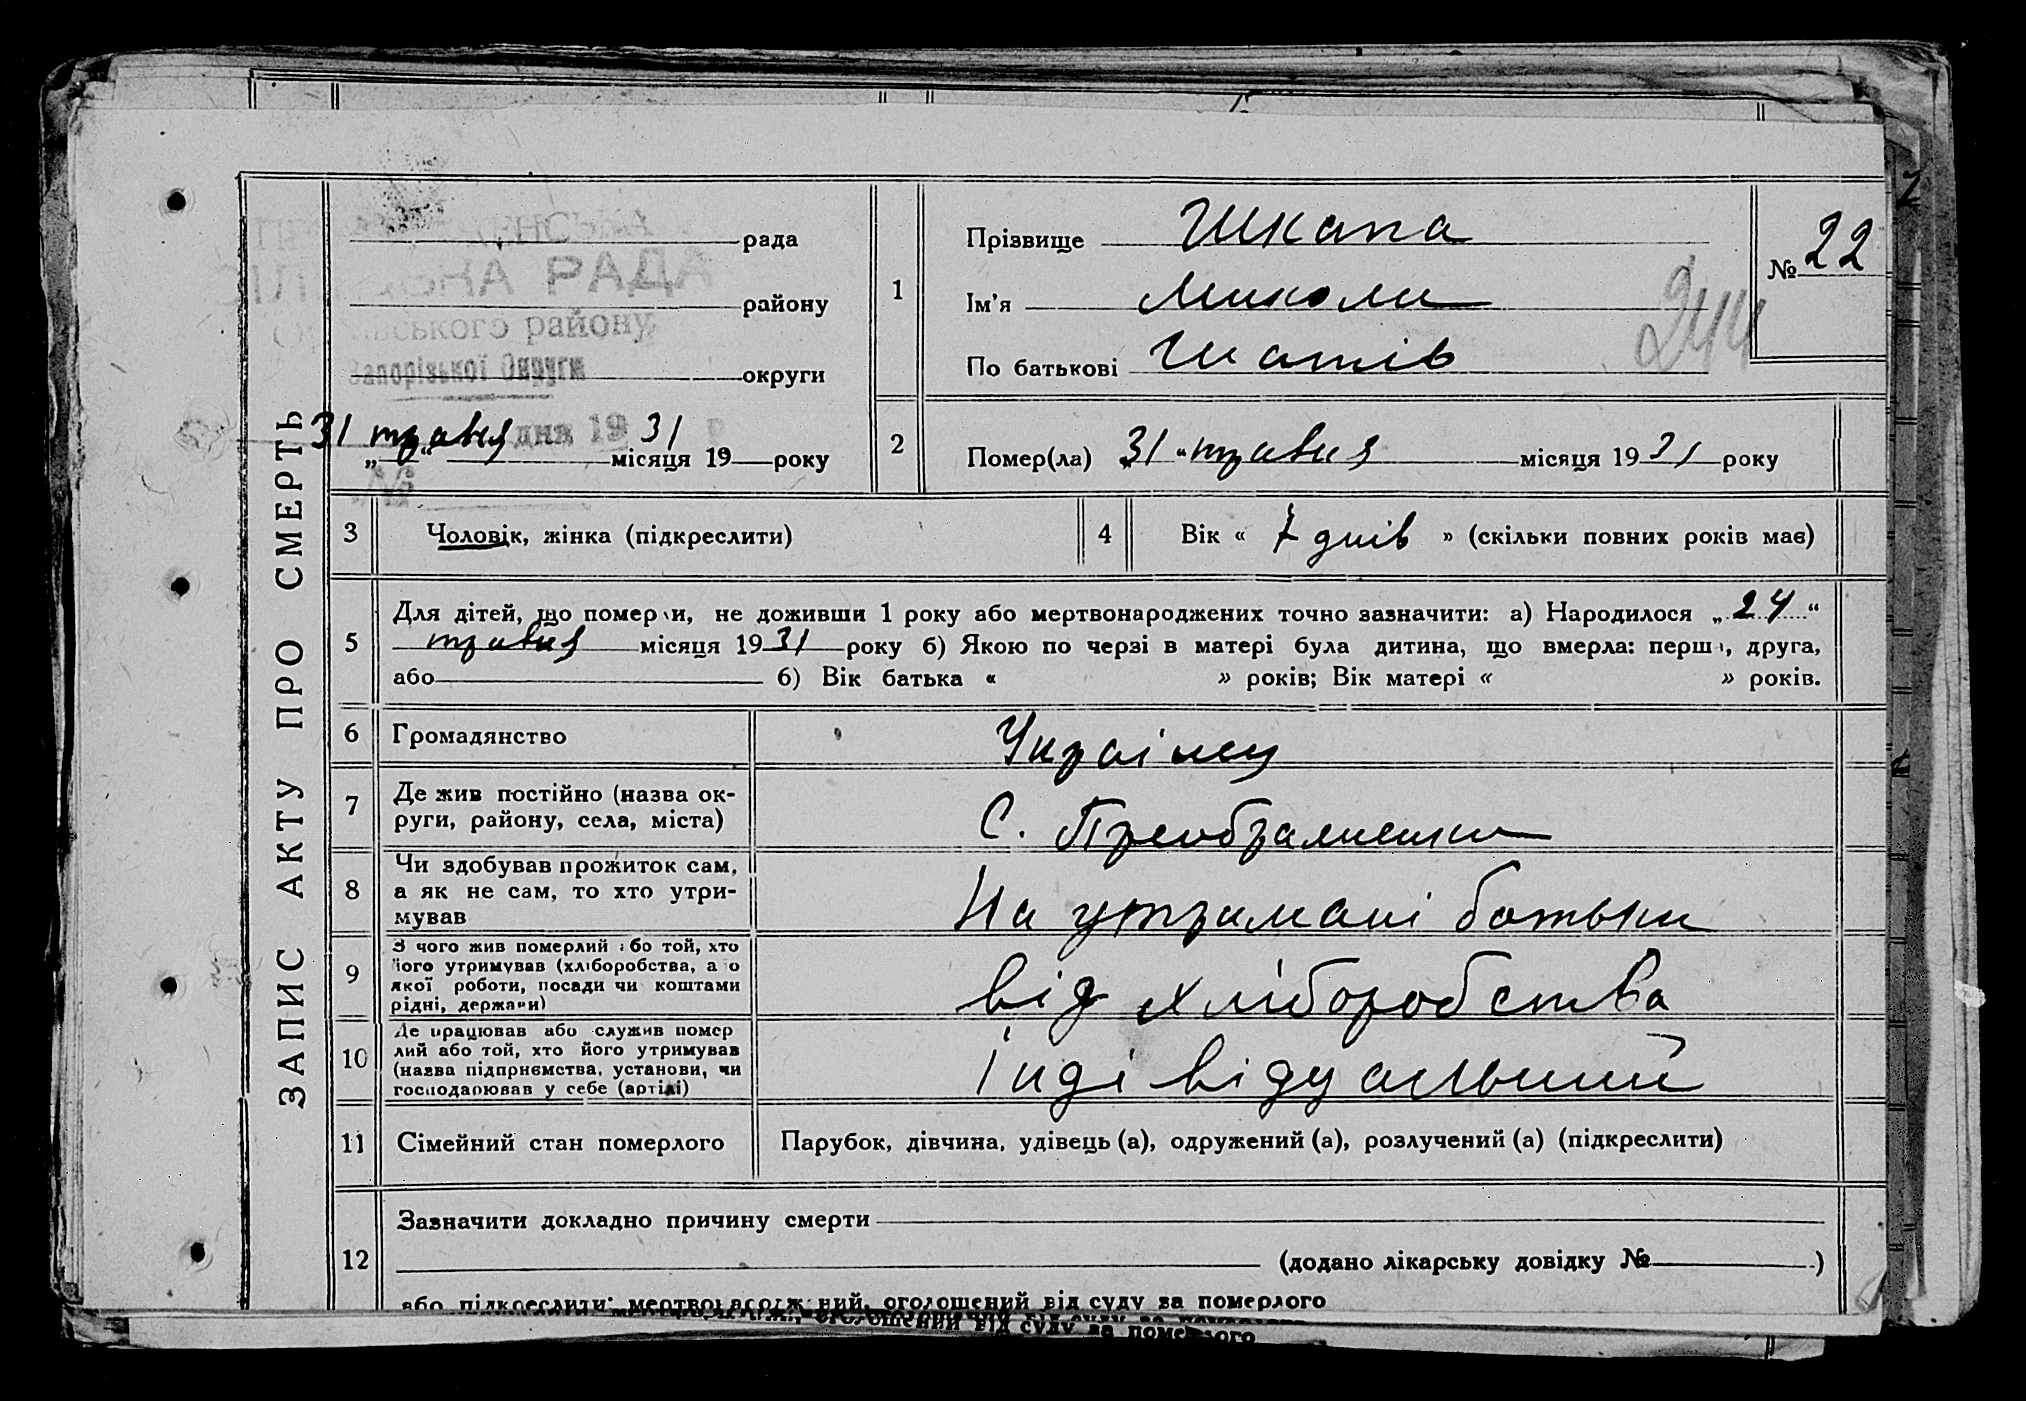 ЗАПИС АКТУ ПРО СМЕРТЬ
СІЛЬСЬКА РАДА
рада
району
району
Запорізької Округи
округи
31 травня дня 19 31 р
„ “ місяця 19 року
№
1
Прізвище Шкапа
Ім'я Миколи
По батькові
№ 22
244
2
Помер(ла) „ 31 “ травня місяця 19 31 року
3
Чоловік, жінка (підкреслити)
4
Вік « 7 днів » (скільки повних років має)
5
Для дітей, що померли, не доживши 1 року або мертвонароджених точно зазначити: а) Народилося „ 24 “
травня місяця 19 31 року б) Якою по черзі в матері була дитина, що вмерла: перша, друга,
або б) Вік батька « » років; Вік матері « » років.
6
Громадянство
7
Де жив постійно (назва ок-
руги, району, села, міста)
С.
8
Чи здобував прожиток сам,
а як не сам, то хто утри-
мував
На утримані батька
9
З чого жив померлий або той, хто
його утримував (хліборобства, а о
якої роботи, посади чи коштами
рідні, держави)
від хліборобства
10
Де працював або служив помер
лий або той, хто його утримував
(назва підприємства, установи, чи
господарював у себе (артілі)
Індівідуальний
11
Сімейний стан померлого
Парубок, дівчина, удівець (а), одружений (а), розлучений (а) (підкреслити)
12
Зазначити докладно причину смерти
(додано лікарську довідку № )
або підкреслити: мертвонароджений, оголошений від суду за померлого
оголошений від суду за померлого